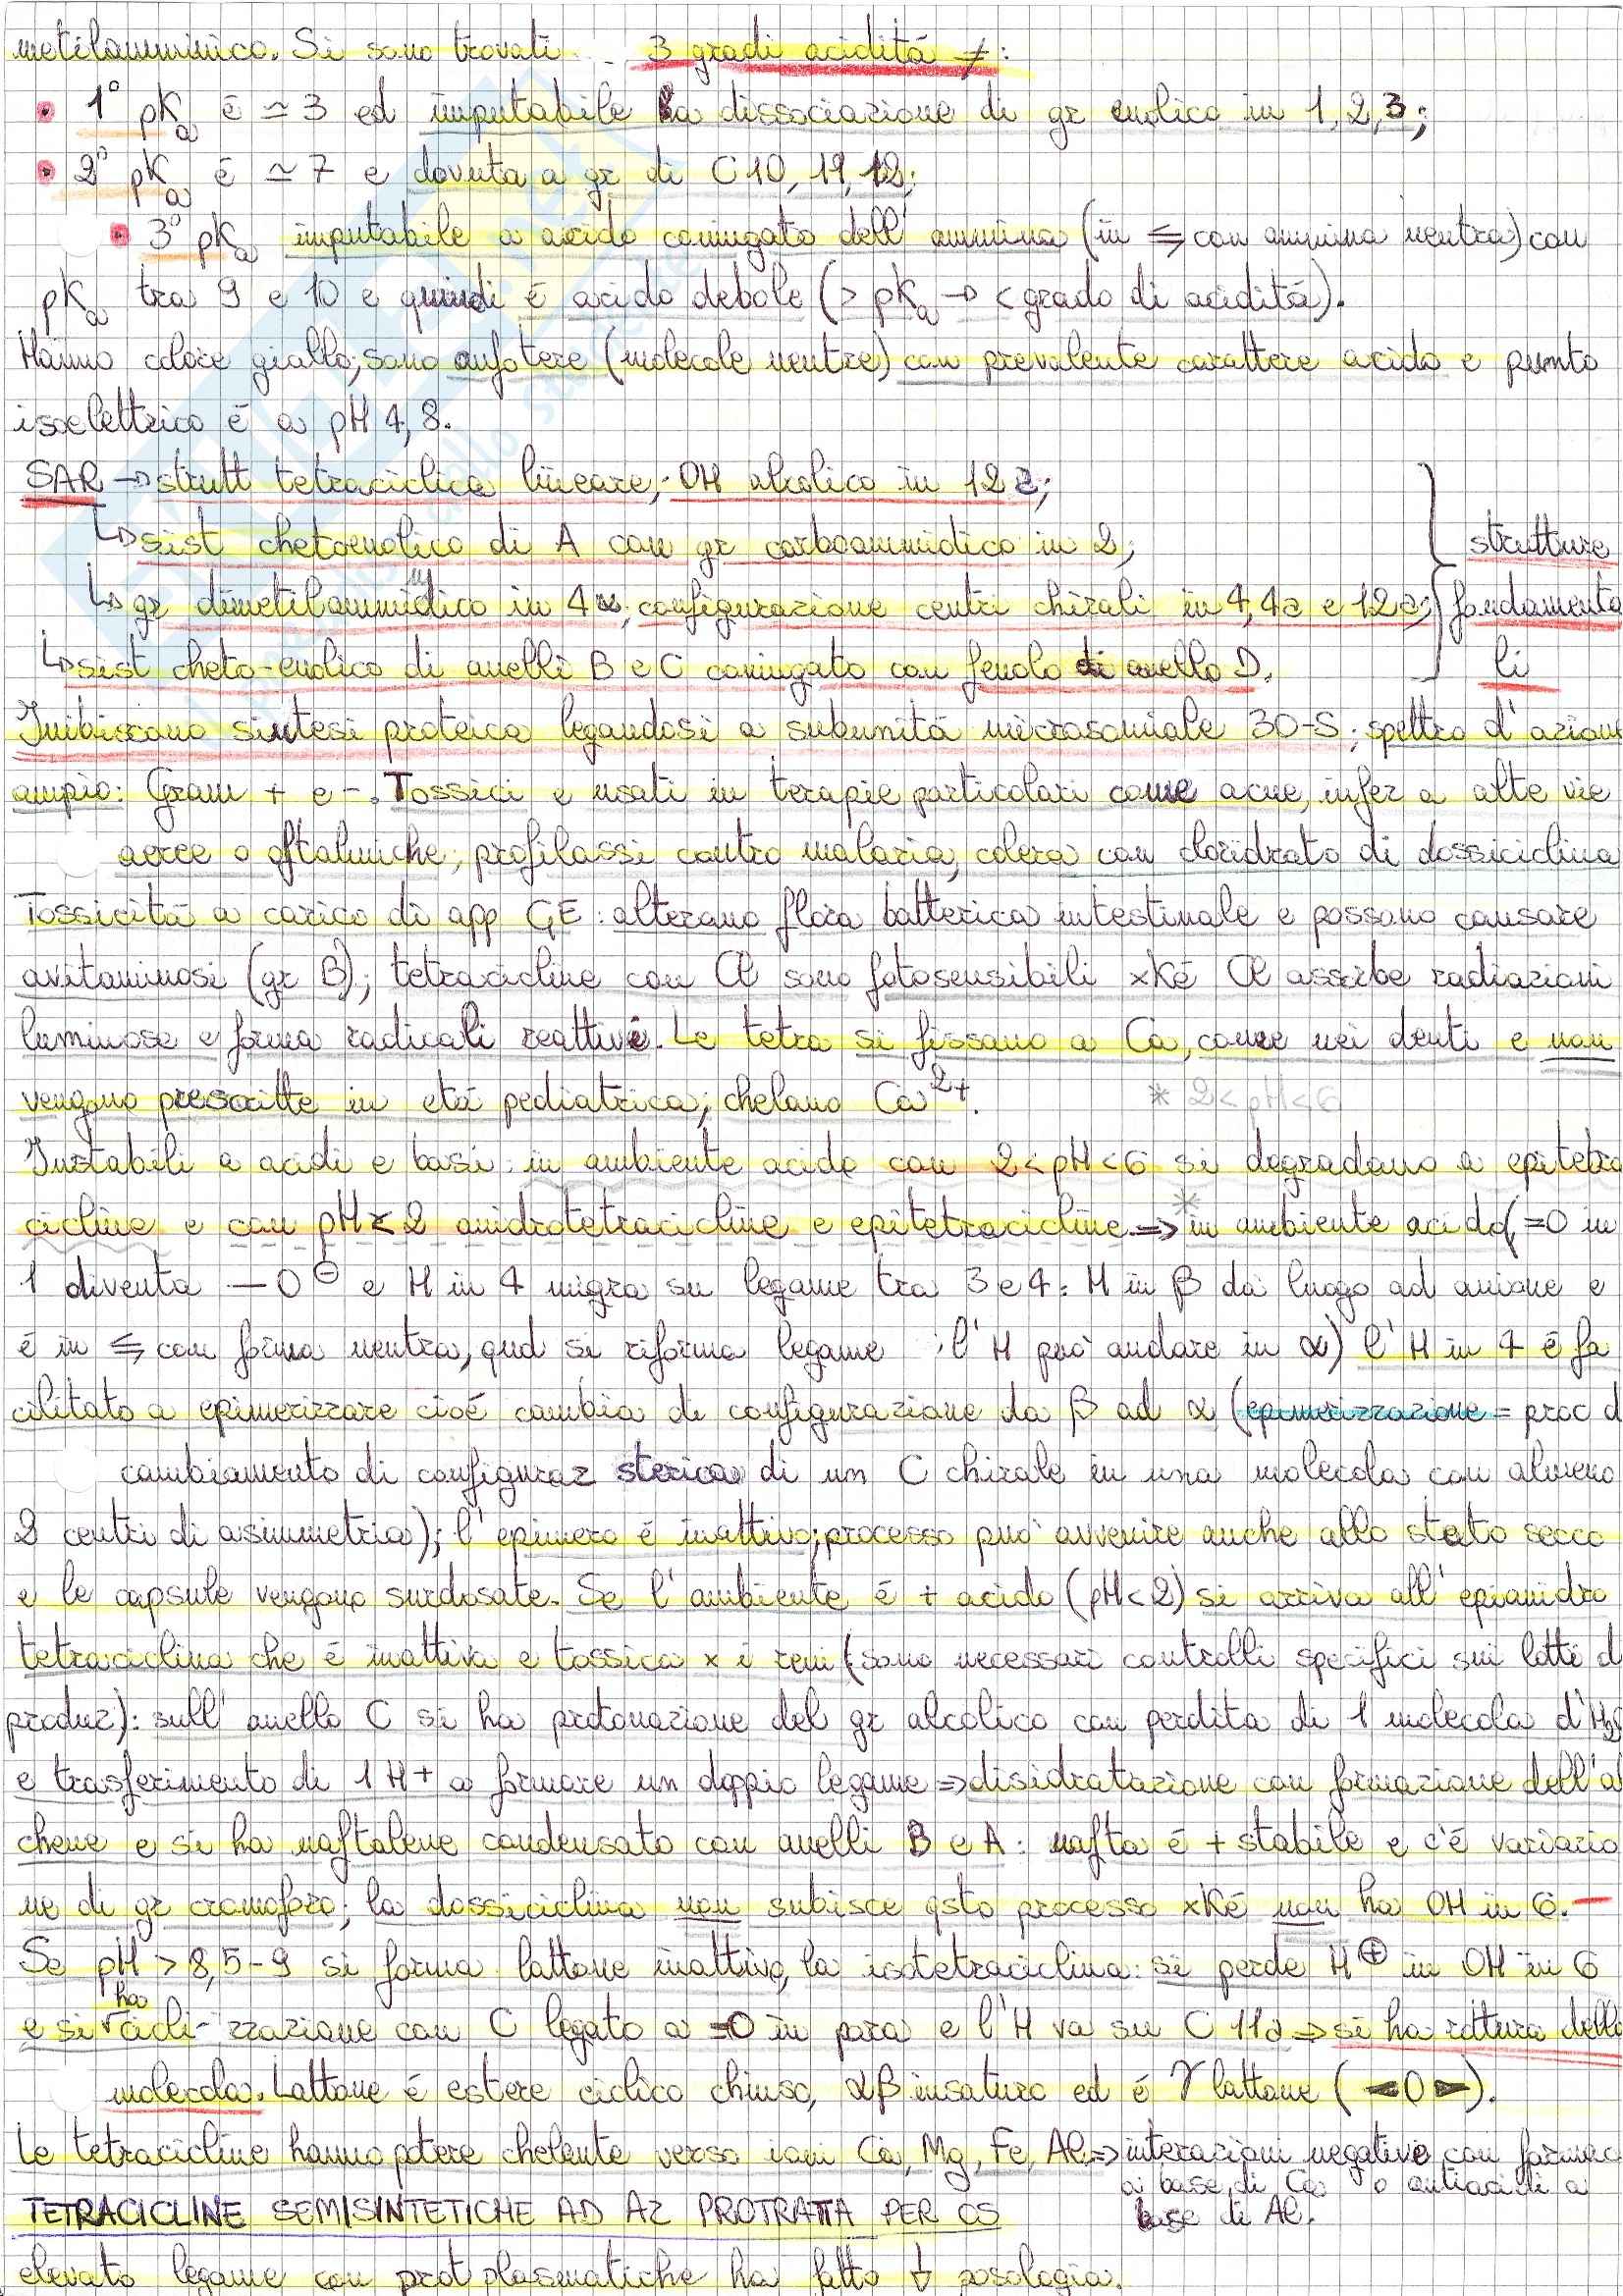 metilamminico. Si sono trovati 3 gradi acidità ≠:
• 1° pKa è ≃ 3 ed imputabile a dissociazione di gr enolico in 1, 2, 3;
• 2° pKa è ≃ 7 e dovuta a gr di C10, 11, 12;
• 3° pKa imputabile a acido coniugato dell'ammina (in ⇆ con ammina neutra) con
pKa tra 9 e 10 e quindi è acido debole (> pKa → < grado di acidità).
Hanno colore giallo; sono anfotere (molecole neutre) con prevalente carattere acido e punto
isoelettrico è a pH 4,8.
SAR → strutt tetraciclica lineare; OH alcolico in 12a;
↳ sist chetoenolico di A con gr carboammidico in 2; strutture
↳ gr dimetilamminico in 4α; configurazione centri chirali in 4, 4a e 12a; fondamenta
↳ sist cheto-enolico di anelli B e C coniugato con fenolo di anello D. li
Inibiscono sintesi proteica legandosi a subunità microsomiale 30-S; spettro d'azione
ampio: Gram + e -. Tossici e usati in terapie particolari come acne, infez a alte vie
aeree o oftalmiche; profilassi contro malaria, colera con cloridrato di dossiciclina
Tossicità a carico di app GE: alterano flora batterica intestinale e possono causare
avitaminosi (gr B); tetracicline con Cl sono fotosensibili xké Cl assorbe radiazioni
luminose e forma radicali reattivi. Le tetra si fissano a Ca, come nei denti e non
vengono prescritte in età pediatrica; chelano Ca²⁺. * 2<pH<6
Instabili a acidi e basi: in ambiente acido con 2<pH<6 si degradano a epitetra
cicline e con pH<2 anidrotetracicline e epitetracicline ⇒ *in ambiente acido(=O in
1 diventa —O⊖ e H in 4 migra su legame tra 3 e 4: H in β dà luogo ad anione e
è in ⇆ con forma neutra, qnd si riforma legame l'H può andare in α) l'H in 4 è fa
cilitato a epimerizzare cioè cambia di configurazione da β ad α (epimerizzazione = proc d
cambiamento di configuraz sterica di un C chirale in una molecola con almeno
2 centri di asimmetria); l'epimero è inattivo; processo può avvenire anche allo stato secco
e le capsule vengono surdosate. Se l'ambiente è + acido (pH<2) si arriva all'epianidro
tetraciclina che è inattiva e tossica x i reni (sono necessari controlli specifici sui lotti d
produz): sull'anello C si ha protonazione del gr alcolico con perdita di 1 molecola d'H₂O
e trasferimento di 1 H+ a formare un doppio legame ⇒ disidratazione con formazione dell'al
chene e si ha naftalene condensato con anelli B e A: nafta è + stabile e c'è variazio
ne di gr cromoforo; la dossiciclina non subisce qsto processo xké non ha OH in 6. —
Se pH > 8,5-9 si forma lattone inattivo, la isotetraciclina: si perde H⊕ in OH in 6
e si ha cicli-zzazione con C legato a =O in para e l'H va su C 11a ⇒ si ha rottura della
molecola. Lattone è estere ciclico chiuso, αβ insaturo ed è γ lattone (◄O►).
Le tetracicline hanno potere chelante verso ioni Ca, Mg, Fe, Al ⇒ interazioni negative con farmac
a base di Ca o antiacidi a
TETRACICLINE SEMISINTETICHE AD AZ PROTRATTA PER OS base di Al.
elevato legame con prot plasmatiche ha fatto ↓ posologia.